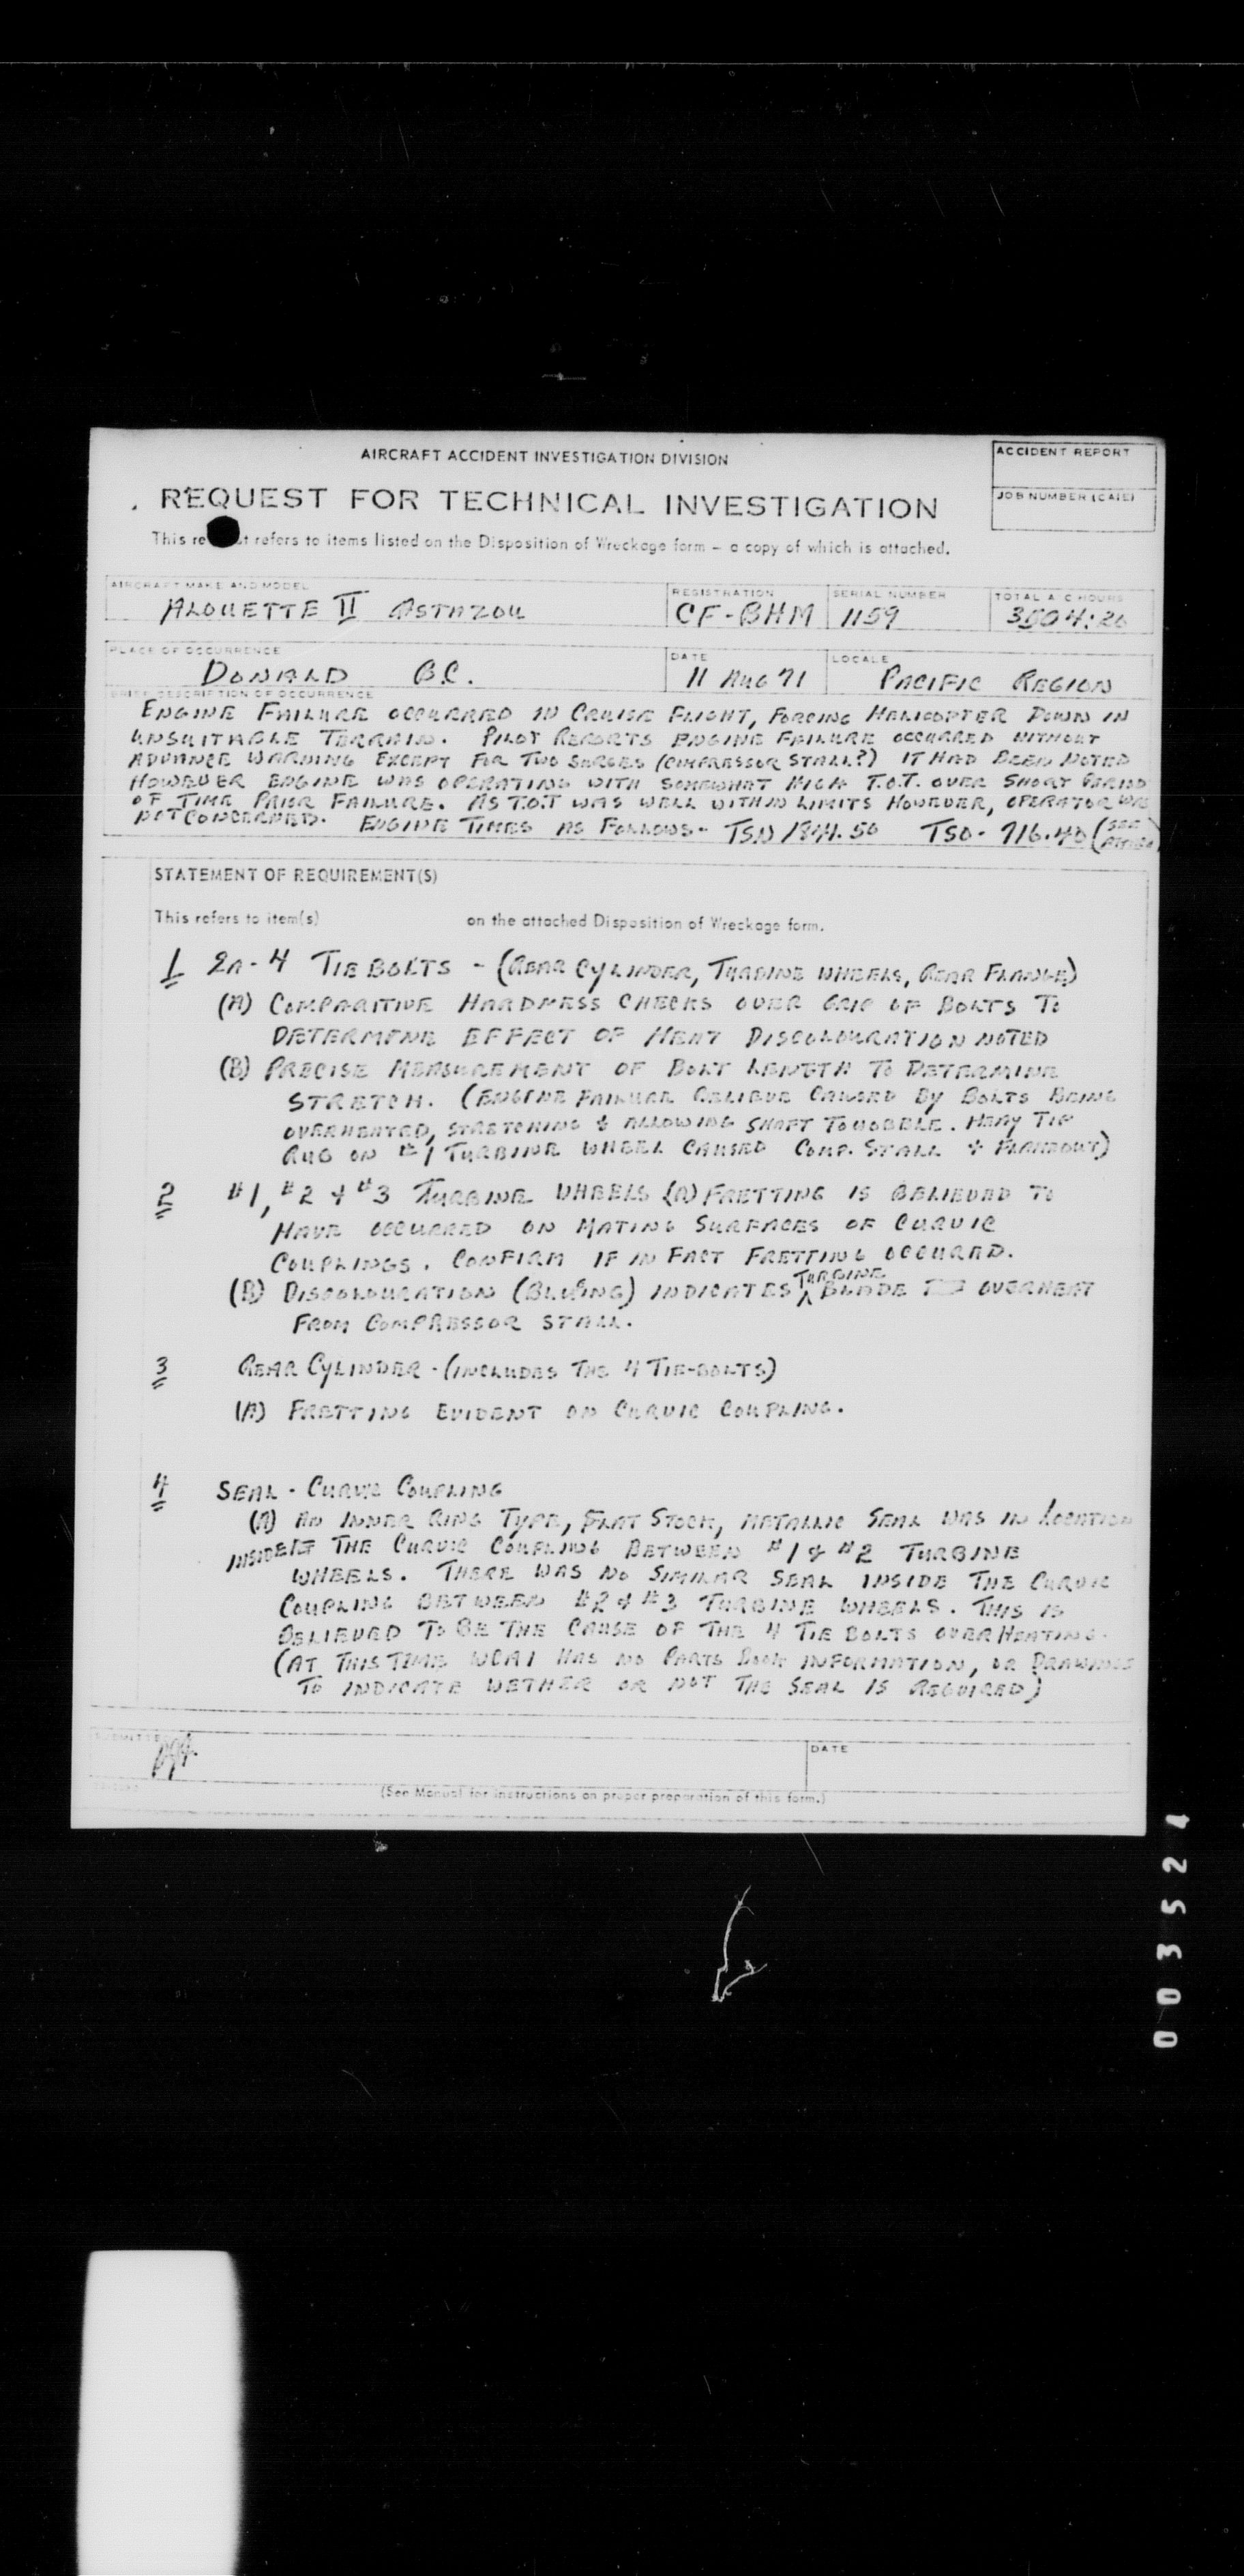 AIRCRAFT ACCIDENT INVESTIGATION DIVISION
ACCIDENT REPORT
REQUEST FOR TECHNICAL INVESTIGATION
JOB NUMBER (CAIE)
This refers to items listed on the Disposition of Wreckage form – a copy of which is attached.
AIRCRAFT MAKE AND MODEL
REGISTRATION
SERIAL NUMBER
TOTAL A/C HOURS
ALOUETTE II ASTAZOU
CF-BHM
1159
3504:20
PLACE OF OCCURRENCE
DATE
LOCALE
DONALD B.C.
11 AUG 71
PACIFIC REGION
BRIEF DESCRIPTION OF OCCURRENCE
ENGINE FAILURE OCCURRED IN CRUISE FLIGHT, FORCING HELICOPTER DOWN IN
UNSUITABLE TERRAIN. PILOT REPORTS ENGINE FAILURE OCCURRED WITHOUT
ADVANCE WARNING EXCEPT FOR TWO SURGES (COMPRESSOR STALL?) IT HAD BEEN NOTED
HOWEVER ENGINE WAS OPERATING WITH SOMEWHAT HIGH T.O.T. OVER SHORT PERIOD
OF TIME PRIOR FAILURE. AS T.O.T WAS WELL WITHIN LIMITS HOWEVER, OPERATOR WAS
NOT CONCERNED. ENGINE TIMES AS FOLLOWS- TSN 1844.50 TSO- 716.40 (SEE
STATEMENT OF REQUIREMENT(S)
This refers to item(s) on the attached Disposition of Wreckage form.
1 2A- 4 TIE BOLTS - (REAR CYLINDER, TURBINE WHEELS, REAR FLANGE)
(A) COMPARITIVE HARDNESS CHECKS OVER GRIP OF BOLTS TO
DETERMINE EFFECT OF HEAT DISCOLOURATION NOTED
(B) PRECISE MEASUREMENT OF BOLT LENGTH TO DETERMINE
STRETCH. (ENGINE FAILURE BELIEVE CAUSED BY BOLTS BEING
OVERHEATED, STRETCHING & ALLOWING SHAFT TO WOBBLE. HEAVY TIP
RUB ON #1 TURBINE WHEEL CAUSED COMP. STALL & FLAMEOUT)
2 #1, #2 & #3 TURBINE WHEELS (A) FRETTING IS BELIEVED TO
HAVE OCCURRED ON MATING SURFACES OF CURVIC
COUPLINGS. CONFIRM IF IN FACT FRETTING OCCURED.
(B) DISCOLOURATION (BLUEING) INDICATES TURBINE BLADE OVERHEAT
FROM COMPRESSOR STALL.
3 REAR CYLINDER - (INCLUDES THE 4 TIE-BOLTS)
(A) FRETTING EVIDENT ON CURVIC COUPLING.
4 SEAL - CURVIC COUPLING
(A) AN INNER RING TYPE, FLAT STOCK, METALLIC SEAL WAS IN LOCATION
INSIDE THE CURVIC COUPLING BETWEEN #1 & #2 TURBINE
WHEELS. THERE WAS NO SIMILAR SEAL INSIDE THE CURVIC
COUPLING BETWEEN #2 & #3 TURBINE WHEELS. THIS IS
BELIEVED TO BE THE CAUSE OF THE 4 TIE BOLTS OVERHEATING.
(AT THIS TIME WCAI HAS NO PARTS BOOK INFORMATION, OR DRAWINGS
TO INDICATE WETHER OR NOT THE SEAL IS REQUIRED)
DATE
(See Manual for instructions on proper preparation of this form.)
003524